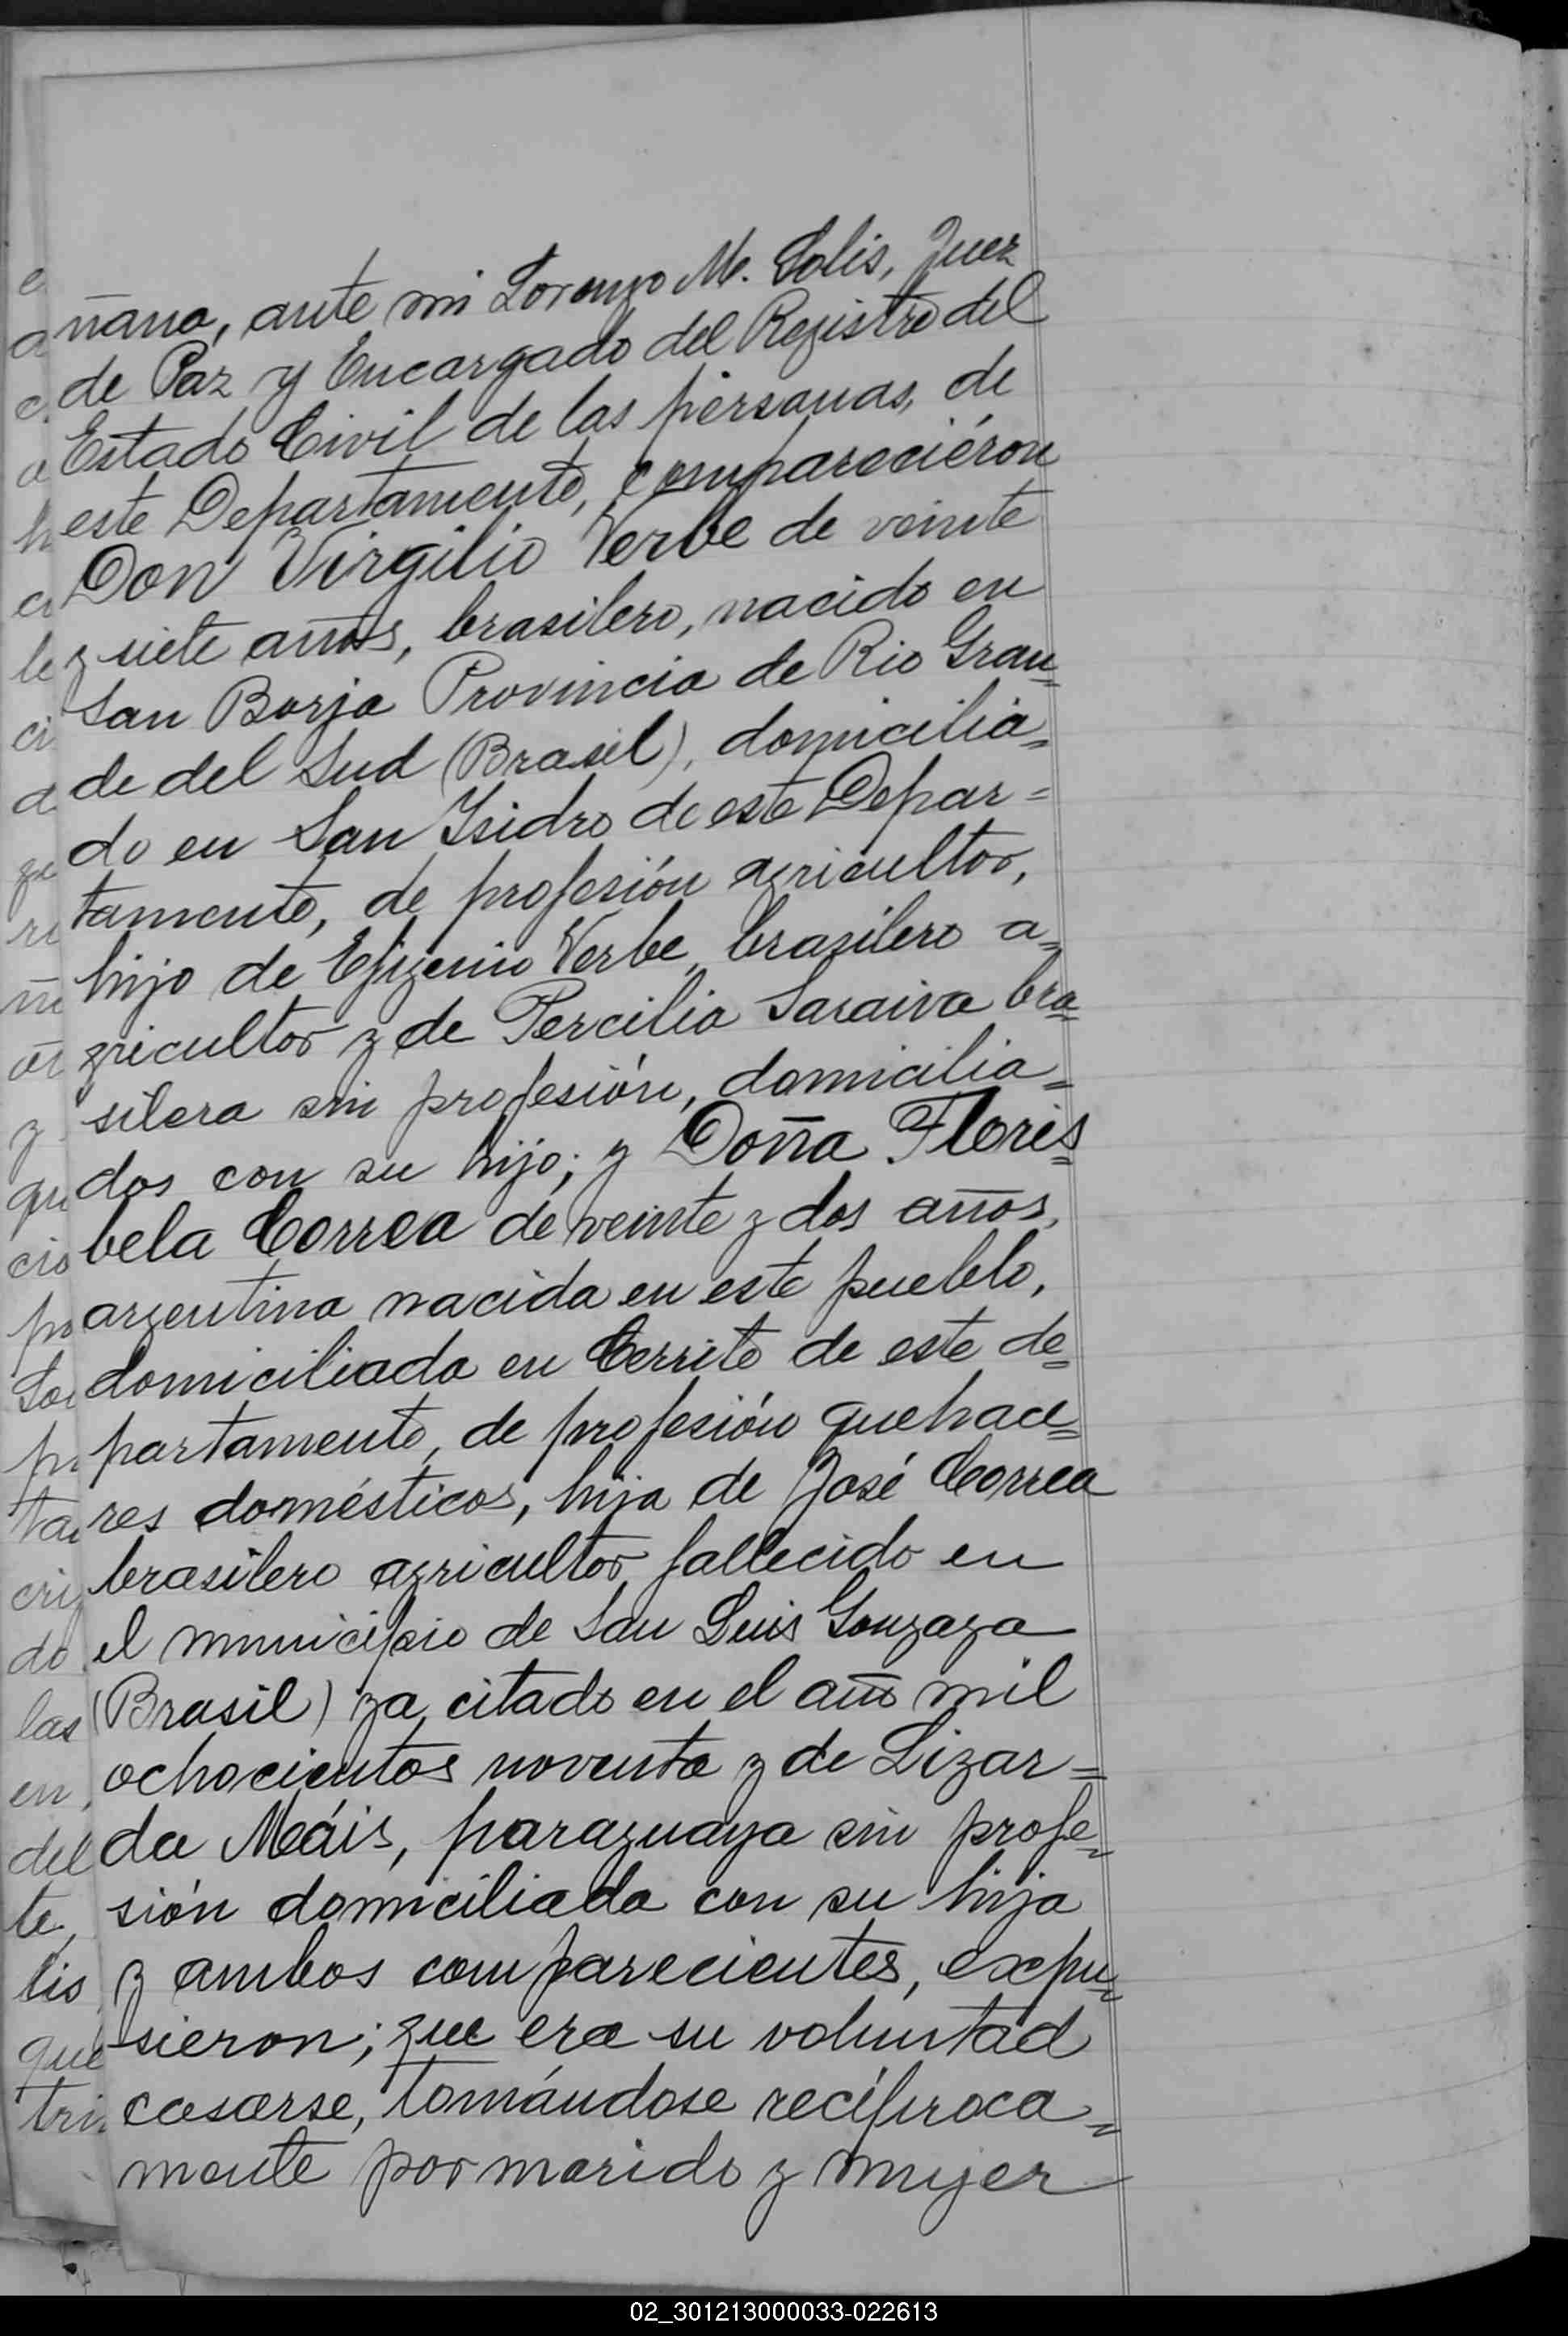 ñana, ante mi Lorenzo M. Solis, Juez
de Paz y Encargado del Registro del
Estado Civil de las personas, de
este Departamento, compareciéron
Don Virgilio Verbe de veinte
y siete años, brasilero, nacido en
San Borja Provincia de Rio Gran=
de del Sud (Brasil), domicilia=
do en San Isidro de este Depar=
tamento, de profesión agricultor,
hijo de Efigenio Verbe, brasilero a=
gricultor y de Percilia Saraiva bra=
silera sin profesión, domicilia=
dos con su hijo; y Doña Floris=
bela Correa de veinte y dos años,
argentina nacida en este pueblo,
domiciliada en Cerrito de este de=
partamento, de profesión quehace=
res domésticos, hija de José Correa
brasilero agricultor fallecido en
el municipio de San Luis Gonzaga
(Brasil) ya citado en el año mil
ochocientos noventa y de Lizar=
da Meáis, paraguaya sin profe=
sión domiciliada con su hija
y ambos comparecientes, expu=
sieron; que era su voluntad
casarse, tomándose recíproca=
mente por marido y mujer
02_301213000033-022613